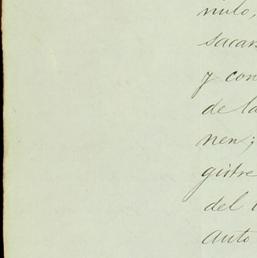 nulo,
sacar
y con
de la
nen;
gistre
del
auto